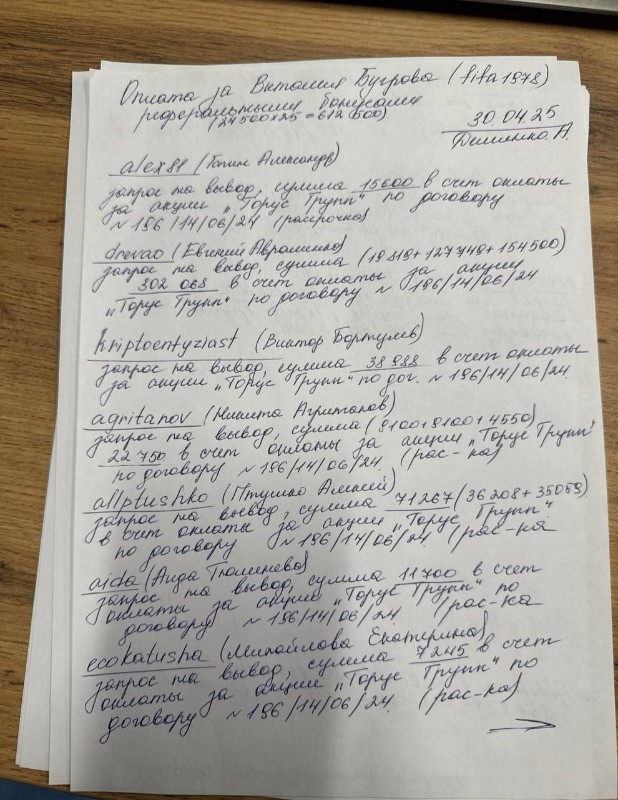 Оплата за Виталия Бугрова (fifa1978)
реферальными бонусами
(24500x25 = 612 500)
30.04.25
Деменко А.
alex81 (Галин Александр)
запрос на вывод, сумма 15600 в счет оплаты
за акции „Торус Групп" по договору
№ 196/14/06/24 (рассрочка)
drevao (Евгений Авраменко)
запрос на вывод, сумма (19819+127749+154500)
302 068 в счет оплаты за акции
„Торус Групп" по договору № 196/14/06/24
kriptoentyziast (Виктор Бортулев)
запрос на вывод, сумма 38988 в счет оплаты
за акции „Торус Групп" по дог. № 196/14/06/24
agritanov (Никита Агританов)
запрос на вывод, сумма (9100+9100+4550)
22 750 в счет оплаты за акции „Торус Групп"
по договору № 196/14/06/24. (рас-ка)
allptushko (Птушко Алексей)
запрос на вывод, сумма 71267 (36208+35059)
в счет оплаты за акции „Торус Групп"
по договору № 196/14/06/24 (рас-ка
aida (Аида Тюленева)
запрос на вывод, сумма 11700 в счет
оплаты за акции „Торус Групп" по
договору № 196/14/06/24. (рас-ка
ecokatusha (Михайлова Екатерина)
запрос на вывод, сумма 7245 в счет
оплаты за акции „Торус Групп" по
договору № 196/14/06/24. (рас-ка)